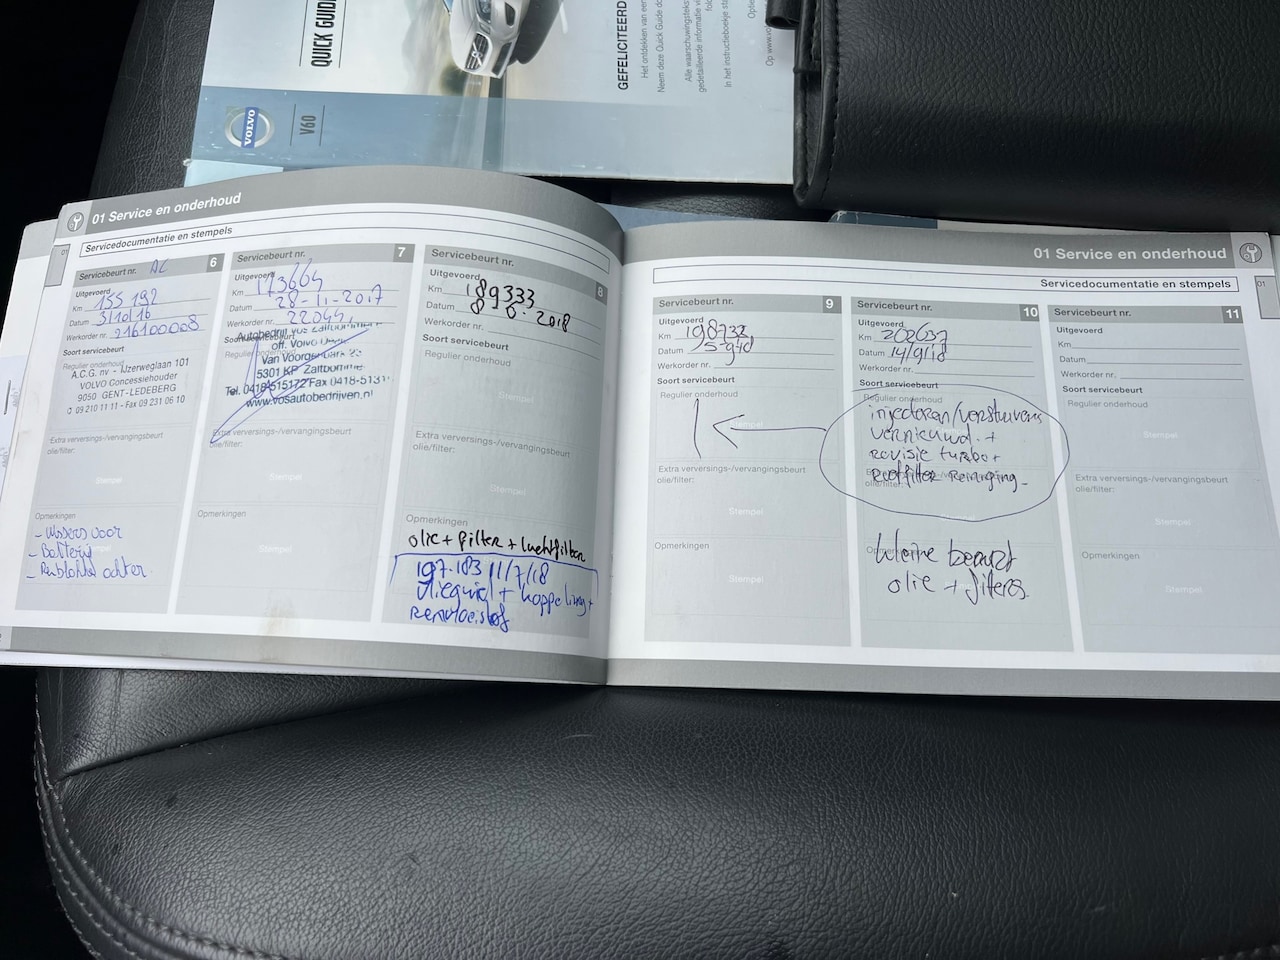 QUICK GUIDE
VOLVO
V60
GEFELICITEERD
Het ontdekken van een
Neem deze Quick Guide do
Alle waarschuwingsteks
gedetailleerde informatie vi
In het instructieboekje sta
Op www.vo
01 Service en onderhoud
01
Servicedocumentatie en stempels
Servicebeurt nr. 6
Uitgevoerd
Km 155 192
Datum 31/10/16
Werkorder nr. 216100008
Soort servicebeurt
Regulier onderhoud
A.C.G. nv - IJzerweglaan 101
VOLVO Concessiehouder
9050 GENT-LEDEBERG
09 210 11 11 - Fax 09 231 06 10
Extra verversings-/vervangingsbeurt
olie/filter:
Stempel
Opmerkingen
- Wissers voor
- Batterij
- Remblokken achter
Servicebeurt nr. 7
Uitgevoerd
Km 173664
Datum 28-11-2017
Werkorder nr. 22045
Regulier onderhoud
Autobedrijf Vos Zaltbommel
off. Volvo
5301 KP Zaltbommel
Tel. 0418-515172 Fax 0418-5131
www.vosautobedrijven.nl
Extra verversings-/vervangingsbeurt
olie/filter:
Opmerkingen
Stempel
Servicebeurt nr. 8
Uitgevoerd
Km 189333
Datum 8 6 2018
Werkorder nr.
Soort servicebeurt
Regulier onderhoud
Stempel
Extra verversings-/vervangingsbeurt
olie/filter:
Stempel
Opmerkingen
olie + filter + luchtfilter
197.183 11/7/18
vliegwiel + koppeling +
remvloeistof
01 Service en onderhoud
01
Servicedocumentatie en stempels
Servicebeurt nr. 9
Uitgevoerd
Km 198733
Datum
Werkorder nr.
Soort servicebeurt
Regulier onderhoud
Stempel
Extra verversings-/vervangingsbeurt
olie/filter:
Stempel
Opmerkingen
Stempel
Servicebeurt nr. 10
Uitgevoerd
Km 202637
Datum
Werkorder nr.
Soort servicebeurt
Regulier onderhoud
injectoren/verstuivers
vernieuwd +
revisie turbo +
roetfilter Reiniging
Stempel
Opmerkingen
kleine beurt
olie + filters
Servicebeurt nr. 11
Uitgevoerd
Km
Datum
Werkorder nr.
Soort servicebeurt
Regulier onderhoud
Stempel
Extra verversings-/vervangingsbeurt
olie/filter:
Stempel
Opmerkingen
Stempel